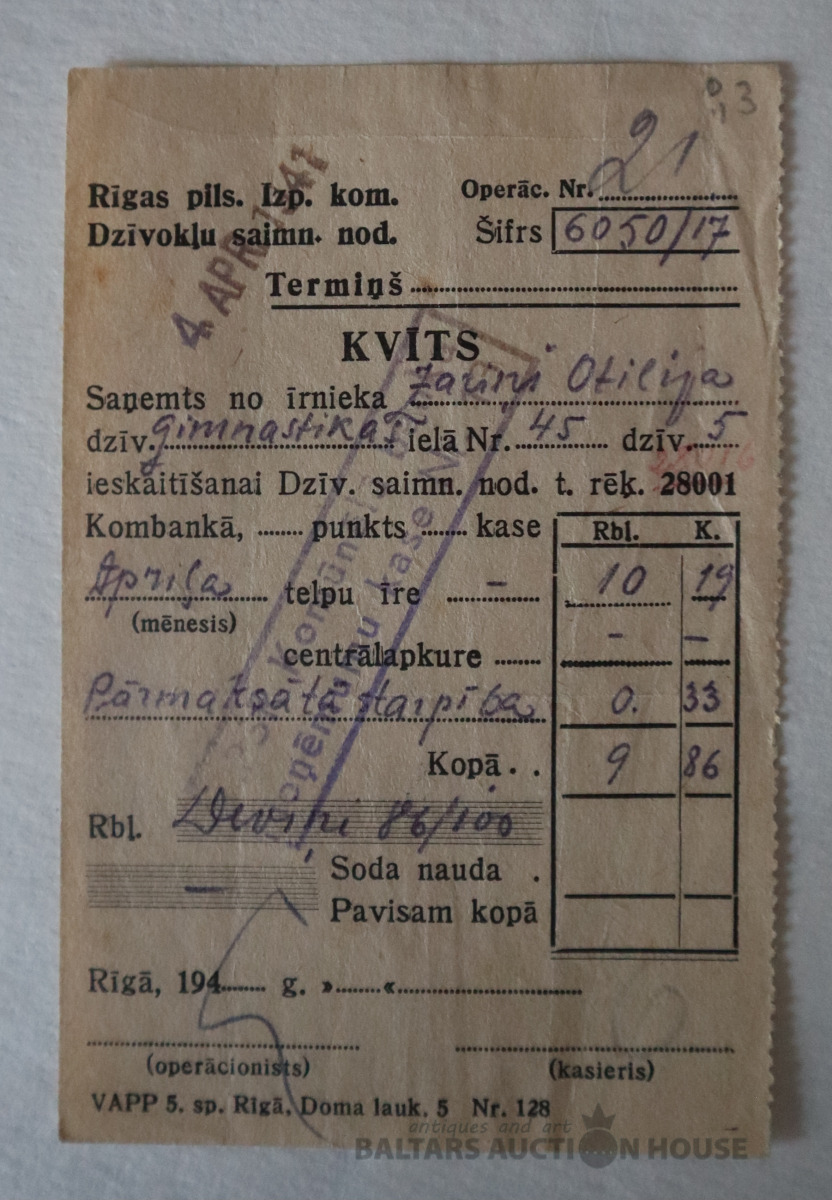 93
Rīgas pils. Izp. kom. Operāc. Nr. 21
Dzīvokļu saimn. nod. Šifrs 6050/17
4 APR 1947
Termiņš
KVĪTS
Saņemts no īrnieka Zariņi Otilija
dzīv. Gimnastikas ielā Nr. 45 dzīv. 5
ieskaitīšanai Dzīv. saimn. nod. t. rēķ. 28001
Kombankā, punkts kase Rbl. K.
Apriļa telpu īre - 10 19
(mēnesis) - -
centrālapkure
Pārmaksātā starpība 0. 33
Kopā . . 9 86
Rbļ. Deviņi 86/100
Soda nauda .
Pavisam kopā
Rīgā, 194 g. » «
(operācionists) (kasieris)
VAPP 5. sp. Rīgā, Doma lauk. 5 Nr. 128
antiques and art
BALTARS AUCTION HOUSE